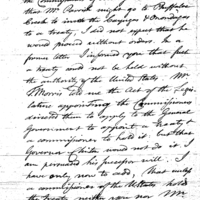 that Mr Parrish might go to Buffaloe
Creek to invite the Cayugas & Onondagas
to a treaty, I did not expect that he
would proceed without orders. In a
former letter I informed you that such
a treaty could not be held without
the authority of the United States. Mr
Morris told me the Act of the Legis-
lature appointing the Commissioners
directed them to apply to the General
Government to appoint a treaty &
a commissioner to hold it; but that
Governor Clinton would not do it. I
am persuaded his successor will. I
have only now to add, that until
a commissioner of the U States holds
the treaty neither you nor Mr